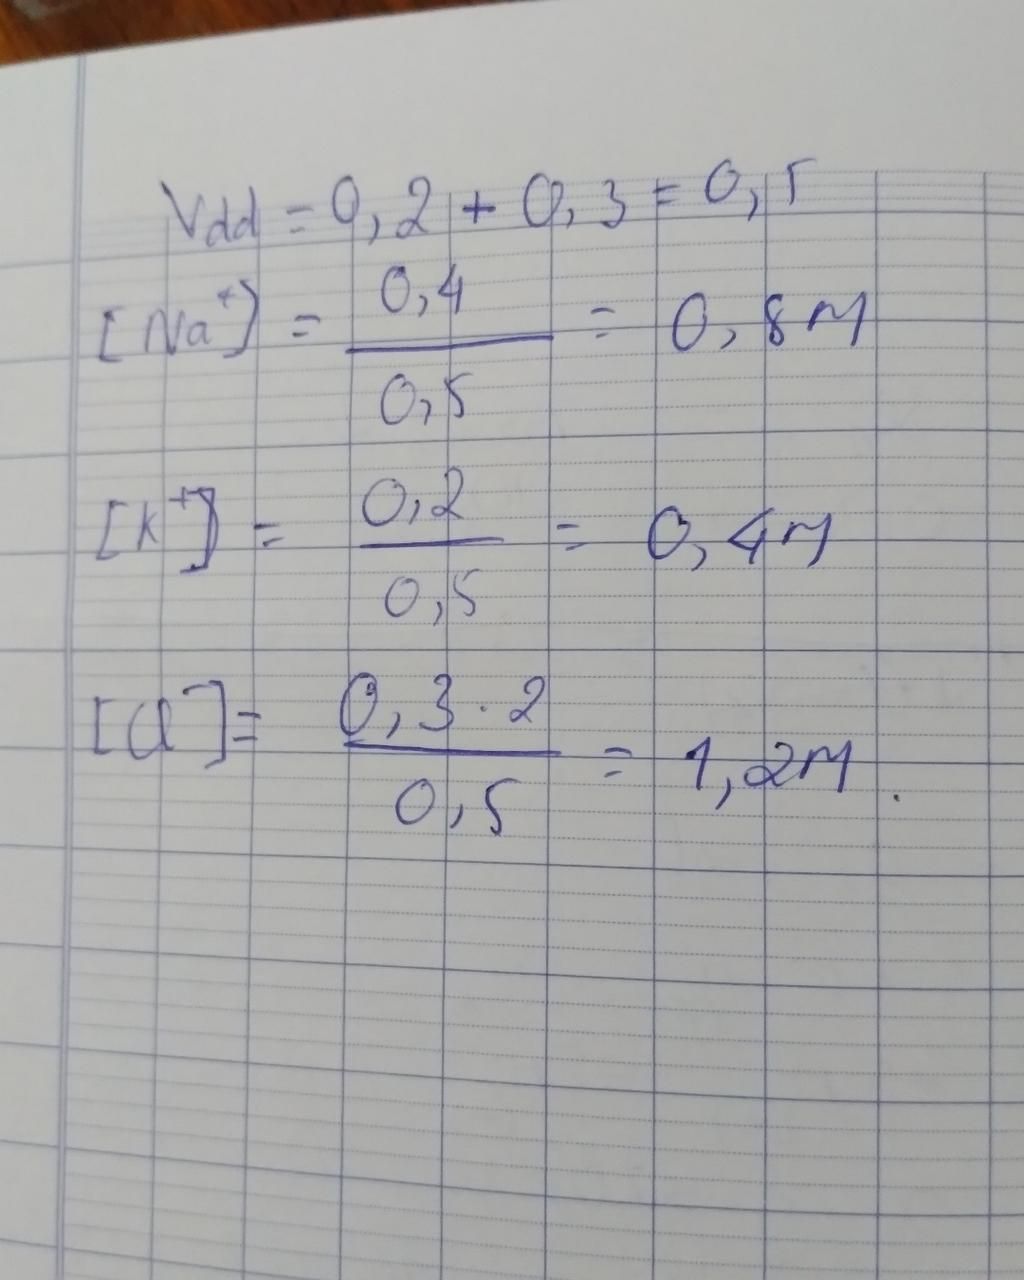 Vdd = 0,2 + 0,3 = 0,5
[Na⁺] = 0,4 / 0,5 = 0,8M
[K⁺] = 0,2 / 0,5 = 0,4M
[Cl⁻] = 0,3 . 2 / 0,5 = 1,2M.